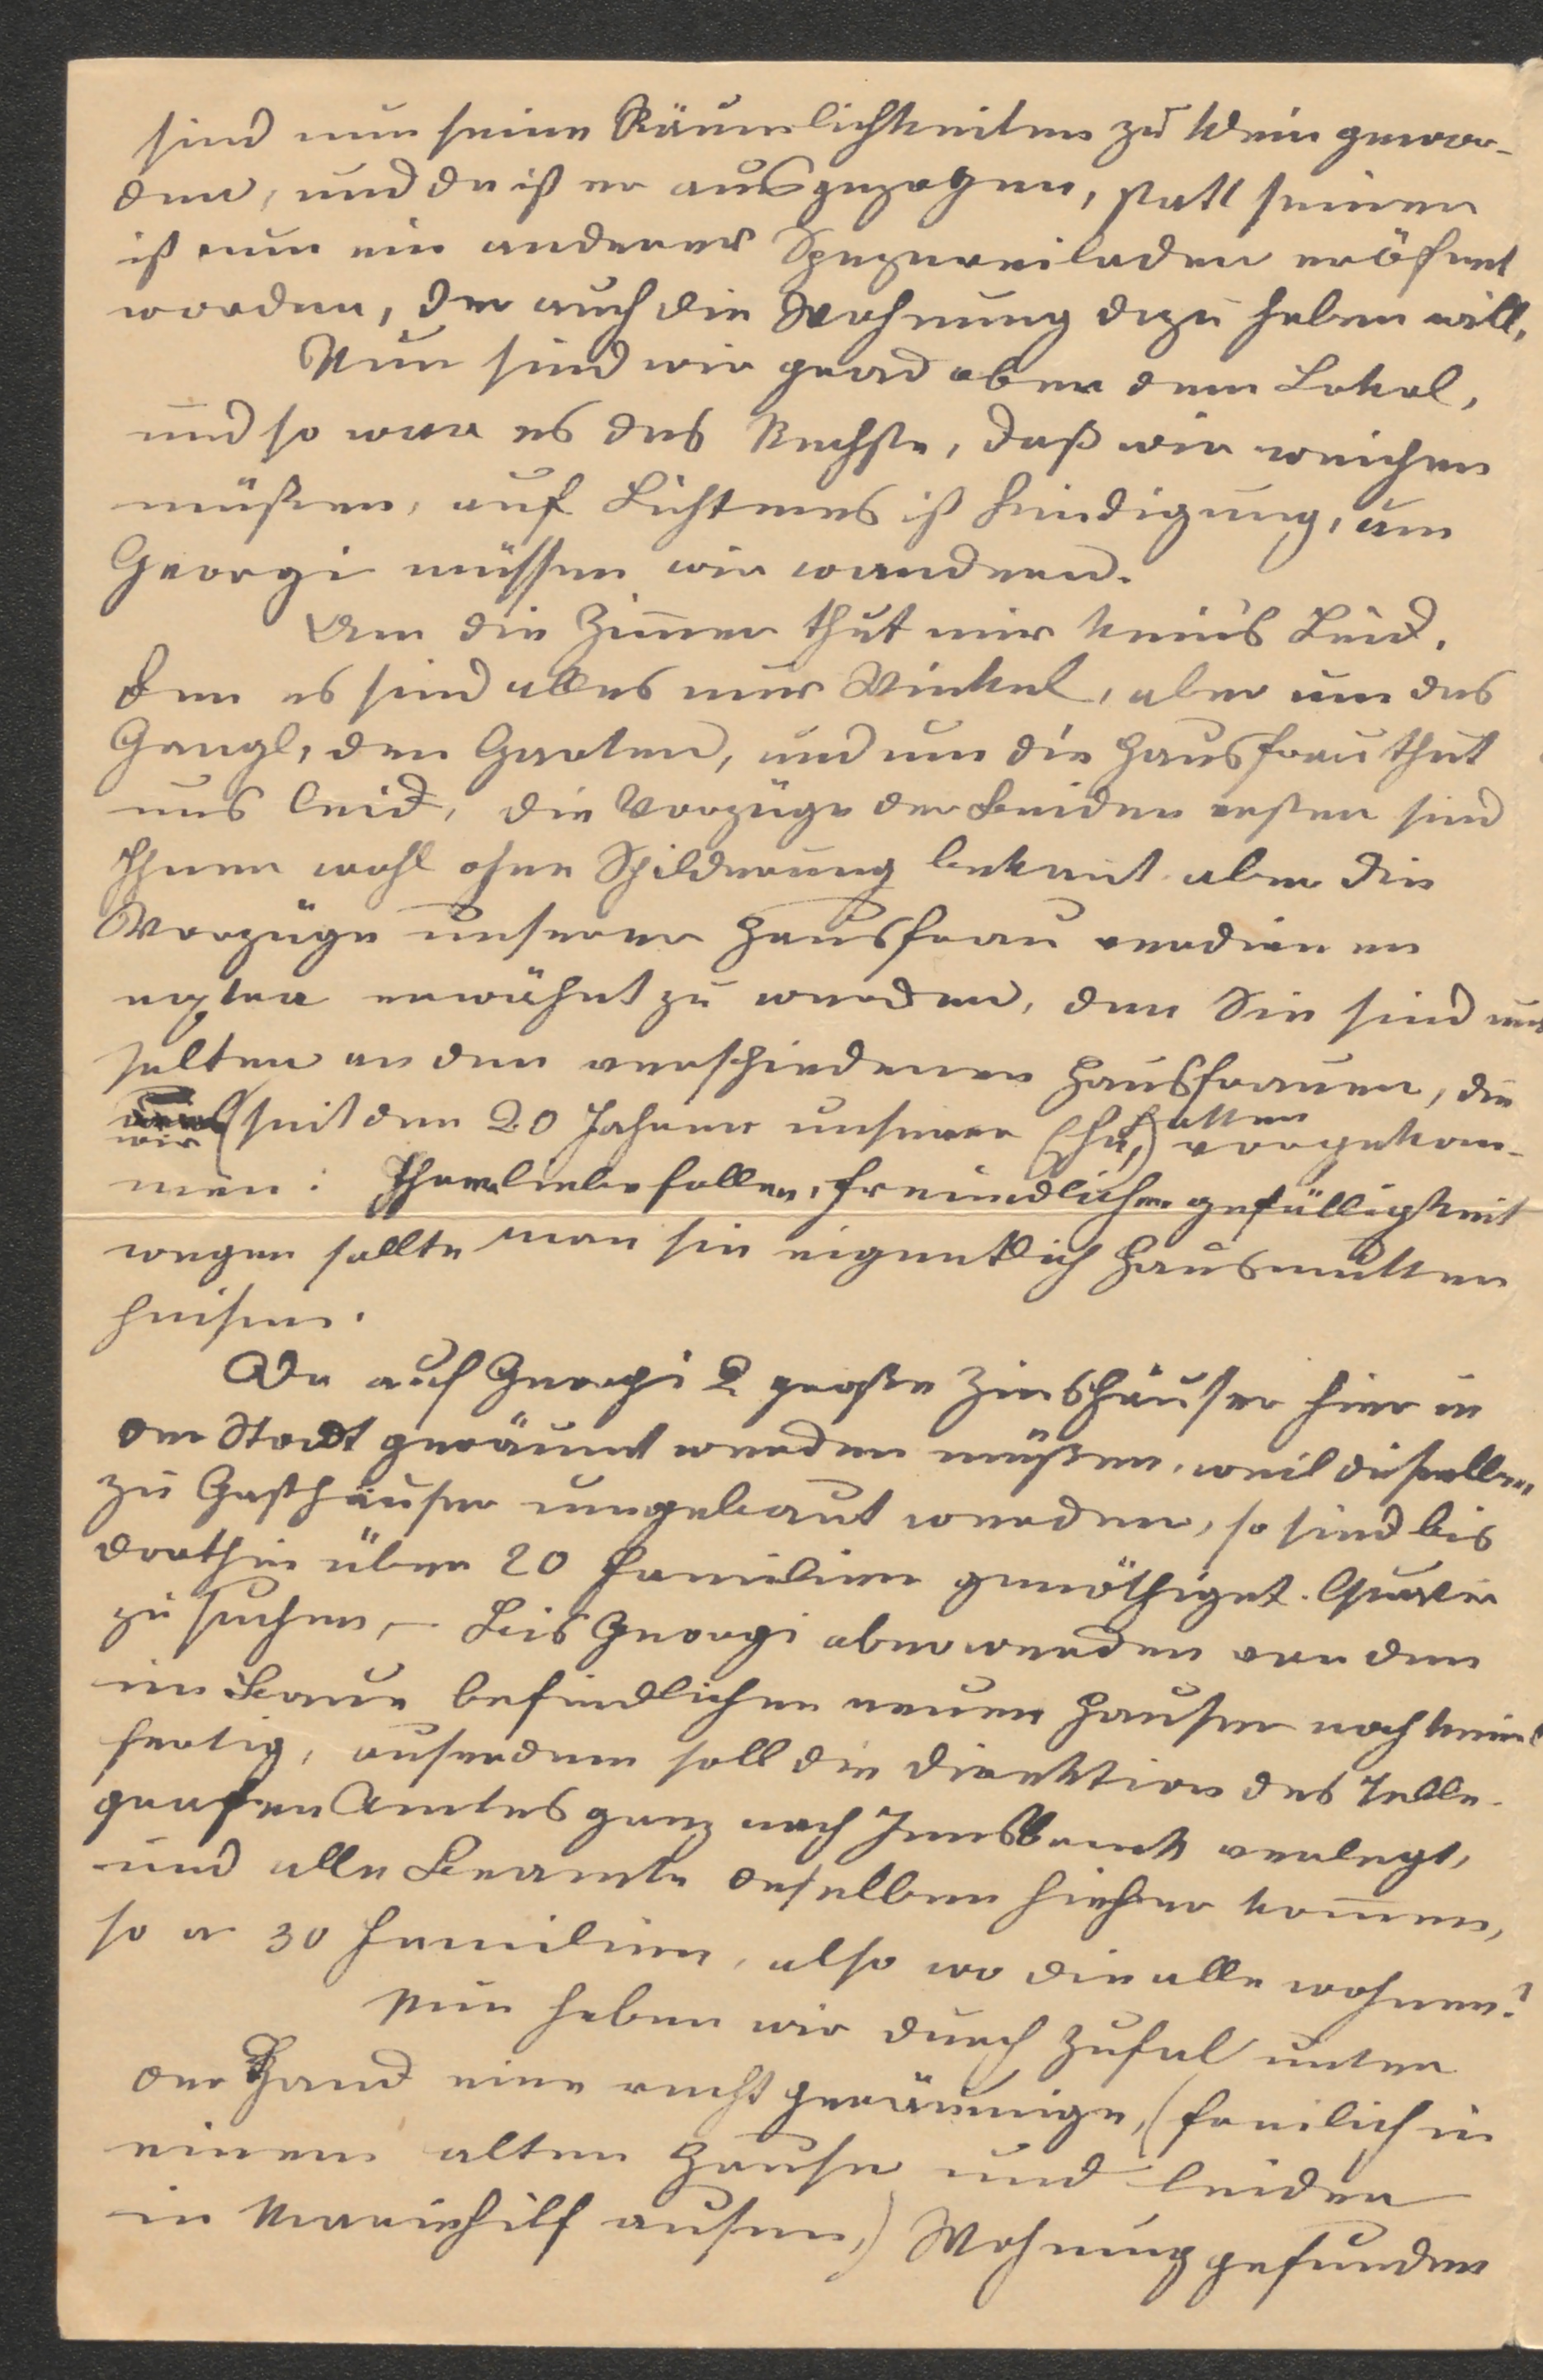 sind nun seine Räumlichkeiten zu klein gewor-
den, und da ist er ausgezogen, statt seiner
ist nun ein anderer Spezereiladen eröfnet
worden, der auch die Wohnung dazu haben will,
Nun sind wir grad ober dem Lokal,
und so war es das Nechste, daß wir weichen
müßen, auf Lichtmes ist Kündigung, um
Georgi müssen wir wandern.
Um die Zimmer thut mir kein's Leid,
den es sind alles nur Winkel, aber um das
Gangl, den Garten, und um die Hausfrau thut
uns leid, die Vorzüge der beiden ersten sind
Ihnen wohl ohne Schilderung bekant aber die
Vorzüge unserer Hausfrau verdienen
extra erwähnt zu werden, den Sie sind uns
selten an den verschiedenen Hausfrauen, die
wir (seit den 20 Jahren unserer Ehe,) hatten vorgekom-
men: Ihrer liebefollen, freundlichen gefälligkeit
wegen sollte man sie eigentlich Hausmutter
heisen.
Da auf Georgi 2 große Zinshäuser hier in
der Stadt geräumt werden müßen, weil dieselben
zu Gasthäuser umgebaut werden, so sind bis
dorthin über 20 Familien genöthiget Quatir
zu suchen, – Bis Georgi aber werden von den
im Baue befindlichen neuen Hauser noch keine
fertig, auserdem soll die Direktion des Telle-
grafen Amtes ganz nach Innsbruck verlegt,
und alle Beamte deselben hieher kommen,
so a 30 Familien, also wo die alle wohnen?
Nun haben wir durch Zufal unter
der Hand eine recht geräumige, (freilich in
einem alten Hause und leider
in Mariehilf ausen,) Wohnung gefunden